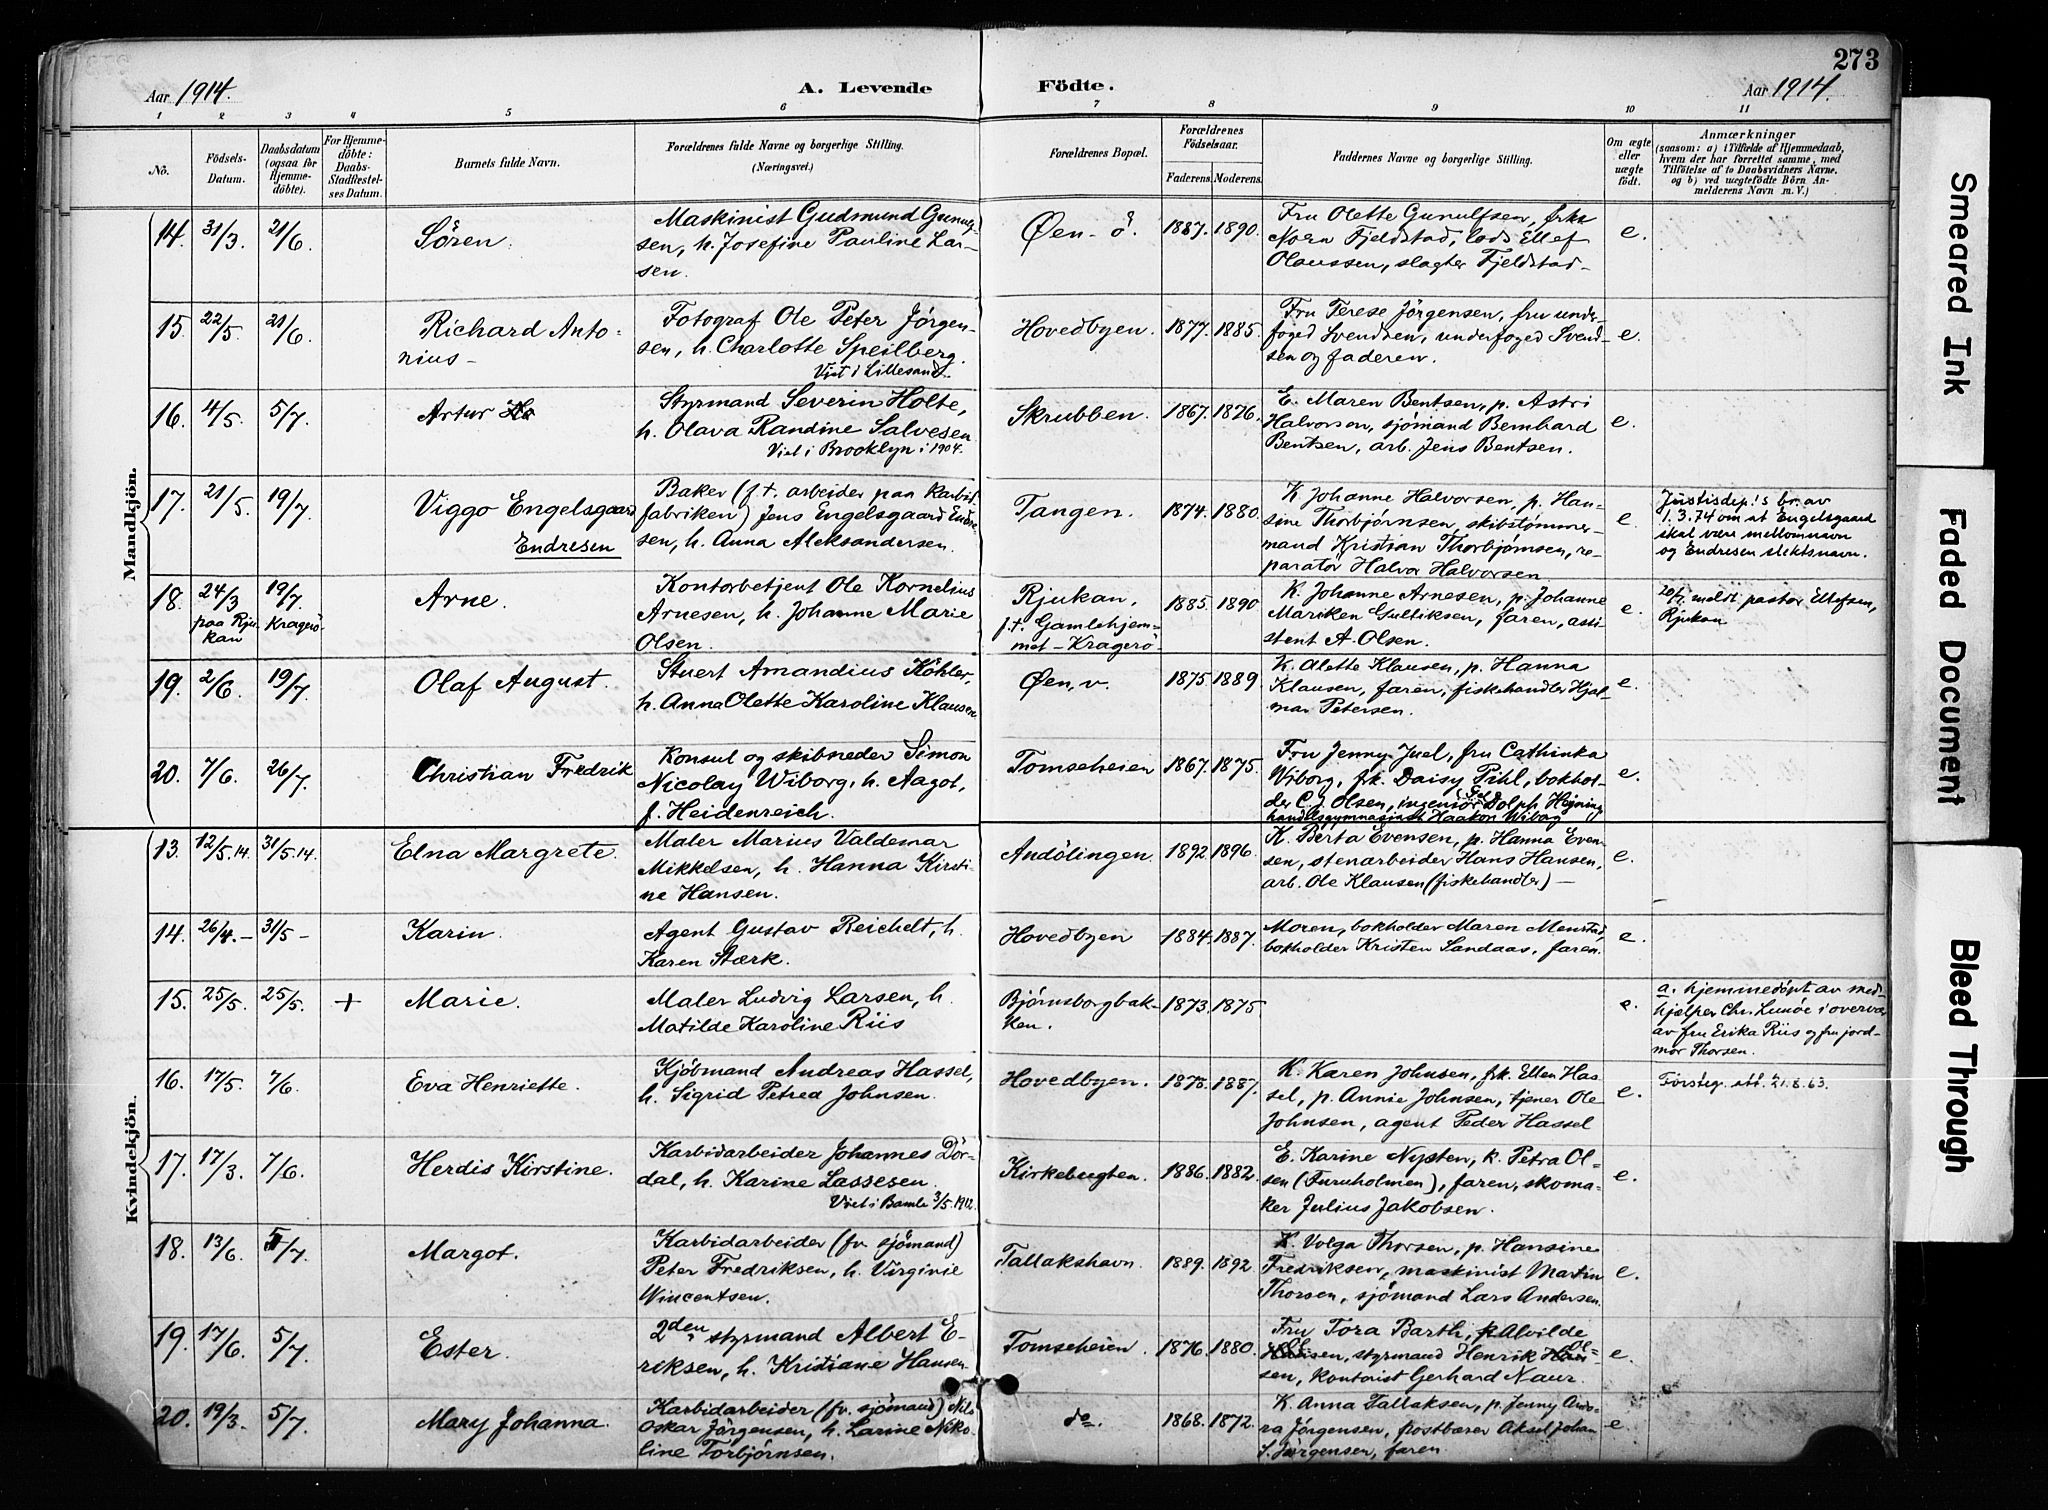 273
Aar 1914.
A. Levende Födte.
Aar 1914.
1 2 3 4 5 6 7 8 9 10 11
No.
Födsels-
Datum.
Daabsdatum
(ogsaa for
Hjemme-
döbte).
For Hjemme-
döbte:
Daabs-
Stadfæstel-
ses Datum.
Barnets fulde Navn.
Forældrenes fulde Navne og borgerlige Stilling.
(Næringsvei.)
Forældrenes Bopæl.
Forældrenes
Födselsaar.
Faderens. Moderens.
Faddernes Navne og borgerlige Stilling.
Om ægte
eller
uægte
födt.
Anmærkninger
(saasom: a) i Tilfælde af Hjemmedaab,
hvem der har forrettet samme, med
Tilföielse af to Daabsvidners Navne,
og b) ved uægtefödte Börn An-
melderens Navn m. V.)
Mandkjön.
14. 31/3. 21/6.
Sören.
Maskinist Gudmund Gunulf-
sen, h. Josefine Pauline Lar-
sen.
Øen - ö. 1887. 1890.
Fru Olette Gunulfsen, frk.
Nora Fjeldstad, lods Ellef
Olaussen, slagter Fjeldstad-
e.
15. 22/5. 21/6.
Richard Anto-
nius-
Fotograf Ole Peter Jörgen-
sen, h. Charlotte Speilberg.
Viet i Lillesand.
Hovedbyen. 1877. 1885.
Fru Terese Jörgensen, fru under-
foged Svendsen, underfoged Svend-
sen og faderen.
e.
16. 4/5. 5/7.
Artur
Styrmand Severin Holte,
h. Olava Randine Salvesen
Viet i Brooklyn i 1904.
Skrubben. 1867. 1876.
E. Maren Bentsen, p. Astri
Halvorsen, sjömand Bernhard
Bentsen, arb. Jens Bentsen.
e.
17. 21/5. 19/7.
Viggo Engelsgaard
Endresen
Baker (f.t. arbeider paa karbid-
fabriken) Jens Engelsgaard Endre-
sen, h. Anna Aleksandersen.
Tangen. 1874. 1880.
K. Johanne Halvorsen, p. Han-
sine Thorbjørnsen, skibstømmer-
mand Kristian Thorbjørnsen, re-
paratör Halvor Halvorsen
e.
Justisdep.'s br. av
1.3.74 om at Engelsgaard
skal være mellomnavn
og Endresen slektsnavn.
18. 24/3 19/7.
paa Rju-
kan
Kragerö
Arne.
Kontorbetjent Ole Kornelius
Arnesen, h. Johanne Marie
Olsen.
Rjukan,
f.t. Gamlehjem-
met - Kragerö
1885. 1890
K. Johanne Arnesen, p. Johanne
Mariken Gulliksen, faren, assi-
stent A. Olsen.
e.
20/7 meldt pastor Ellefsen,
Rjukan
19. 2/6. 19/7.
Olaf August.
Stuert Amandius Köhler,
h. Anna Olette Karoline Klausen
Øen, v. 1875. 1889.
K. Alette Klausen, p. Hanna
Klausen, faren, fiskehandler Hjal-
mar Petersen.
e.
20. 7/6. 26/7.
Christian Fredrik
Konsul og skibsreder Simon
Nicolay Wiborg, h. Aagot,
f. Heidenreich.
Tomseheien 1867. 1875.
Fru Jenny Juel, fru Cathinka
Wiborg, frk. Daisy Pihl, bokhol-
der C. J. Olsen, ingeniör Dolph,
handelsgymnasiast Haakon Wiborg
e.
Kvindekjön.
13. 12/5.14. 31/5.14.
Elna Margrete.
Maler Marius Valdemar
Mikkelsen, h. Hanna Kirsti-
ne Hansen.
Andölingen. 1892. 1896.
K. Berta Evensen, p. Hanna Even-
sen, stenarbeider Hans Hansen,
arb. Ole Klausen (fiskehandler) -
e.
14. 26/4.- 31/5-
Karin.
Agent Gustav Reichelt, h.
Karen Stærk.
Hovedbyen 1884. 1887.
Moren, bokholder Maren Menstad,
bokholder Kristen Sandaas, faren.
e.
15. 25/5. 25/5. +
Marie.
Maler Ludvig Larsen, h.
Matilde Karoline Riis
Bjørnsborgbak-
ken.
1873. 1875
e.
a. hjemmedöpt av med-
hjælper Chr. Lunöe i overvær
av fru Erika Riis og fru jord-
mor Thorsen.
16. 17/5. 7/6.
Eva Henriette.
Kjöbmand Andreas Hassel,
h. Sigrid Petrea Johnsen.
Hovedbyen. 1878. 1887.
K. Karen Johnsen, frk. Ellen Has-
sel, p. Annie Johnsen, tjener Ole
Johnsen, agent Peder Hassel
e.
Försteg. att. 21.8.63.
17. 17/3. 7/6.
Herdis Kirstine.
Karbidarbeider Johannes Dör-
dal, h. Karine Lassesen.
Viet i Bamle 3/5.1912.
Kirkebugten. 1886. 1882.
E. Karine Nysten, k. Petra Ol-
sen (Furuholmen), faren, skoma-
ker Julius Jakobsen.
e.
18. 13/6. 5/7.
Margot.
Karbidarbeider (fv. sjömand)
Peter Fredriksen, h. Virginie
Wincentsen.
Tallakshavn. 1889. 1892
K. Volga Thorsen, p. Hansine
Fredriksen, maskinist Martin
Thorsen, sjömand Lars Andersen.
e.
19. 17/6. 5/7.
Ester.
2den styrmand Albert E-
riksen, h. Kristiane Hansen
Tomseheien. 1876. 1880.
Fru Tora Barth, p. Alvilde
styrmand Henrik Ol-
sen, kontorist Gerhard Naur.
e.
20. 19/3. 5/7.
Mary Johanna.
Karbidarbeider (fv. sjömand) Nils
Oskar Jörgensen, h. Larine Niko-
line Torbjørnsen.
do. 1868. 1872.
K. Anna Tallaksen, p. Jenny Ando-
ra Jörgensen, postbærer Aksel Johan
S. Jörgensen, faren
e.
Smeared Ink
Faded Document
Bleed Through